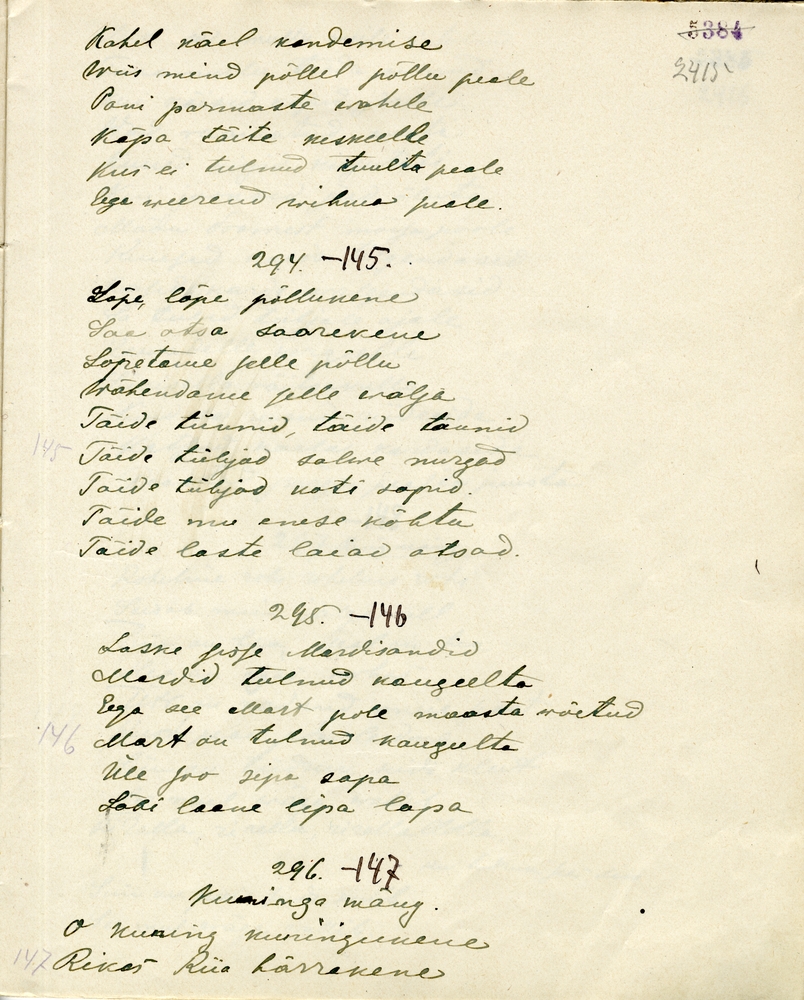 5384
2415
Kahel käel kandemise
Wiis mind põllel põllu peale
Pani parmaste wahele
Käpa täite keskelle
Kus ei tulnud tuulta peale
Ega weerend wihma peale.
294. -145.
Lõpe, lõpe põllukene
Saa otsa saarekene
Lõpetame selle põllu
Wähendame selle wälja
Täide tünnid, täide taunid
145 Täide tühjad salwe nurgad
Täide tühjad koti sopid.
Täide mu enese kõhtu
Täide laste laiad otsad.
295. -146
Laske sisse Mardisandid
Mardid tulnud kaugeelta
Ega see Mart pole maasta wõetud
146 Mart on tulnud kaugelta
Üle soo sipa sapa
Läbi laane lipa lapa
296. -147
Kuninga mäng.
O kuning kuningukene
147 Rikas Riia härrakene